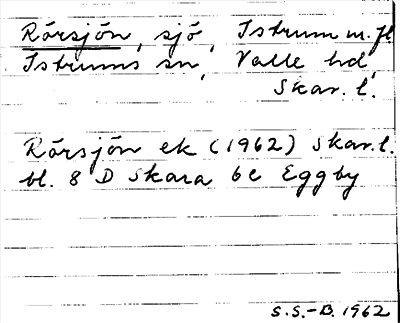 Rörsjön, sjö, Istrum m.fl.
Istrums sn, Valle hd,
Skar. l.
Rörsjön ek (1962) Skar. l.
bl. 8 D Skara 6c Eggby
S.S.-B. 1962